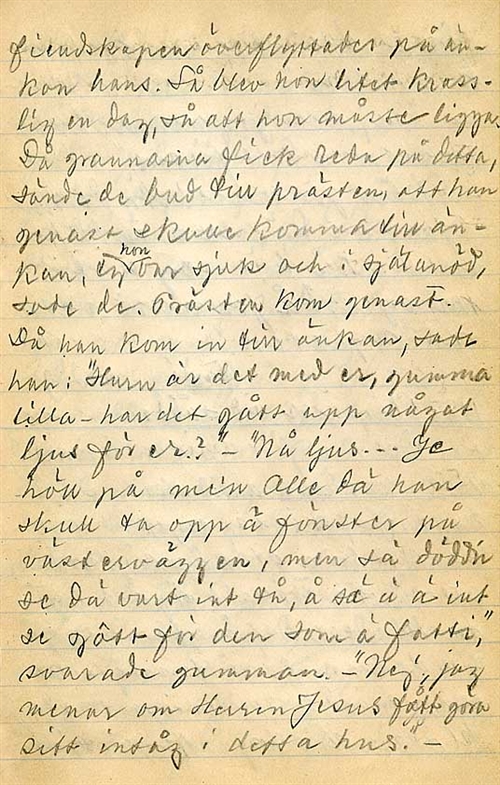 fiendskapen överflyttades på än-
kan hans. Så blev hon litet krass-
lig en dag, så att hon måste ligga.
Då grannarna fick reda på detta,
sände de bud till prästen, att han
genast skulle komma till än-
kan, ty hon var sjuk och i själanöd,
sade de. Prästen kom genast.
Då han kom in till änkan, sade
han: "Huru är det med er, gumma
lilla – har det gått upp något
ljus för er?" – "Nå ljus... Je
höll på min Alle då han
skull ta opp å fönster på
västerväggen, men så döddn
se då vart int tå, å så ä ä int
se gått för den som ä fatti,"
svarade gumman. – "Nej, jag
menar om Herren Jesus fått göra
sitt intåg i detta hus." –